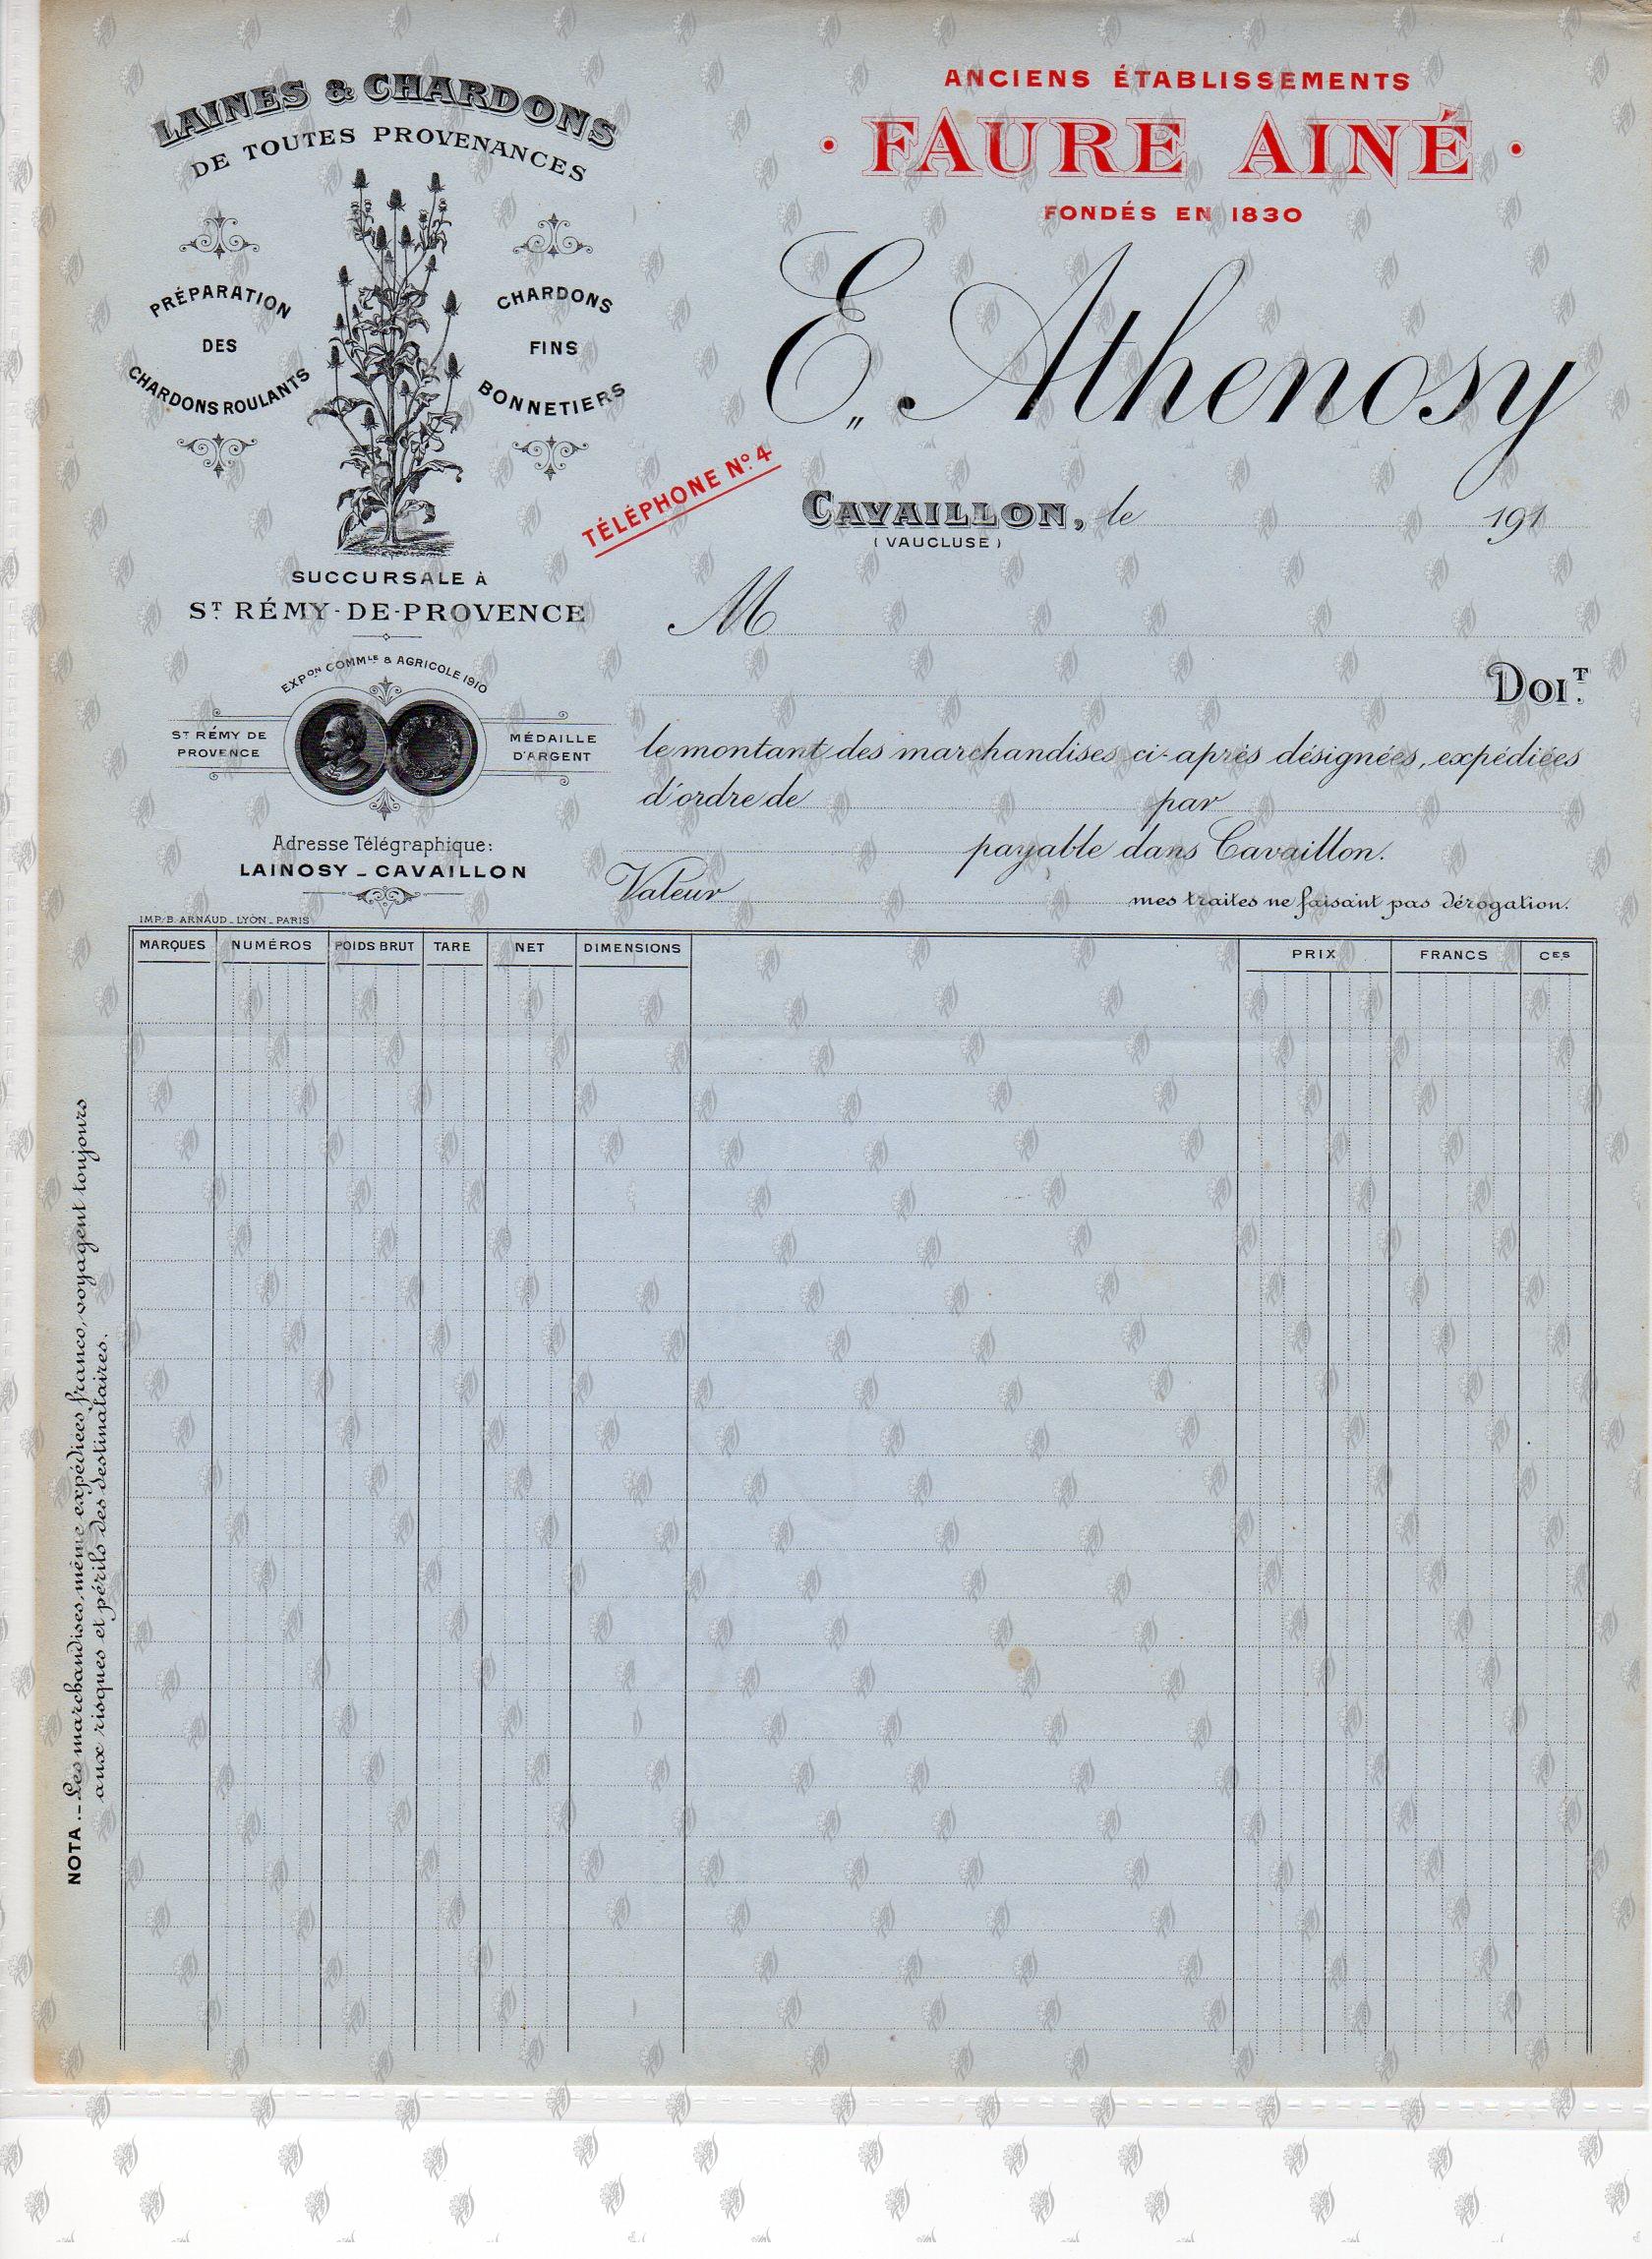 LAINES & CHARDONS
DE TOUTES PROVENANCES
PRÉPARATION
DES
CHARDONS ROULANTS
CHARDONS
FINS
BONNETIERS
SUCCURSALE À
ST RÉMY-DE-PROVENCE
EXPON COMMLE & AGRICOLE 1910
ST RÉMY DE
PROVENCE
MÉDAILLE
D'ARGENT
Adresse Télégraphique:
LAINOSY _ CAVAILLON
IMP. B. ARNAUD _ LYON _ PARIS
ANCIENS ÉTABLISSEMENTS
• FAURE AINÉ •
FONDÉS EN 1830
E. Athenosy
TÉLÉPHONE No. 4
CAVAILLON, le 191
(VAUCLUSE)
M
DOIT
le montant des marchandises ci-après désignées, expédiées
d'ordre de par
payable dans Cavaillon.
Valeur mes traites ne faisant pas dérogation.
MARQUES NUMÉROS POIDS BRUT TARE NET DIMENSIONS PRIX FRANCS CES
NOTA._ Les marchandises, même expédiées franco, voyagent toujours
aux risques et périls des destinataires.